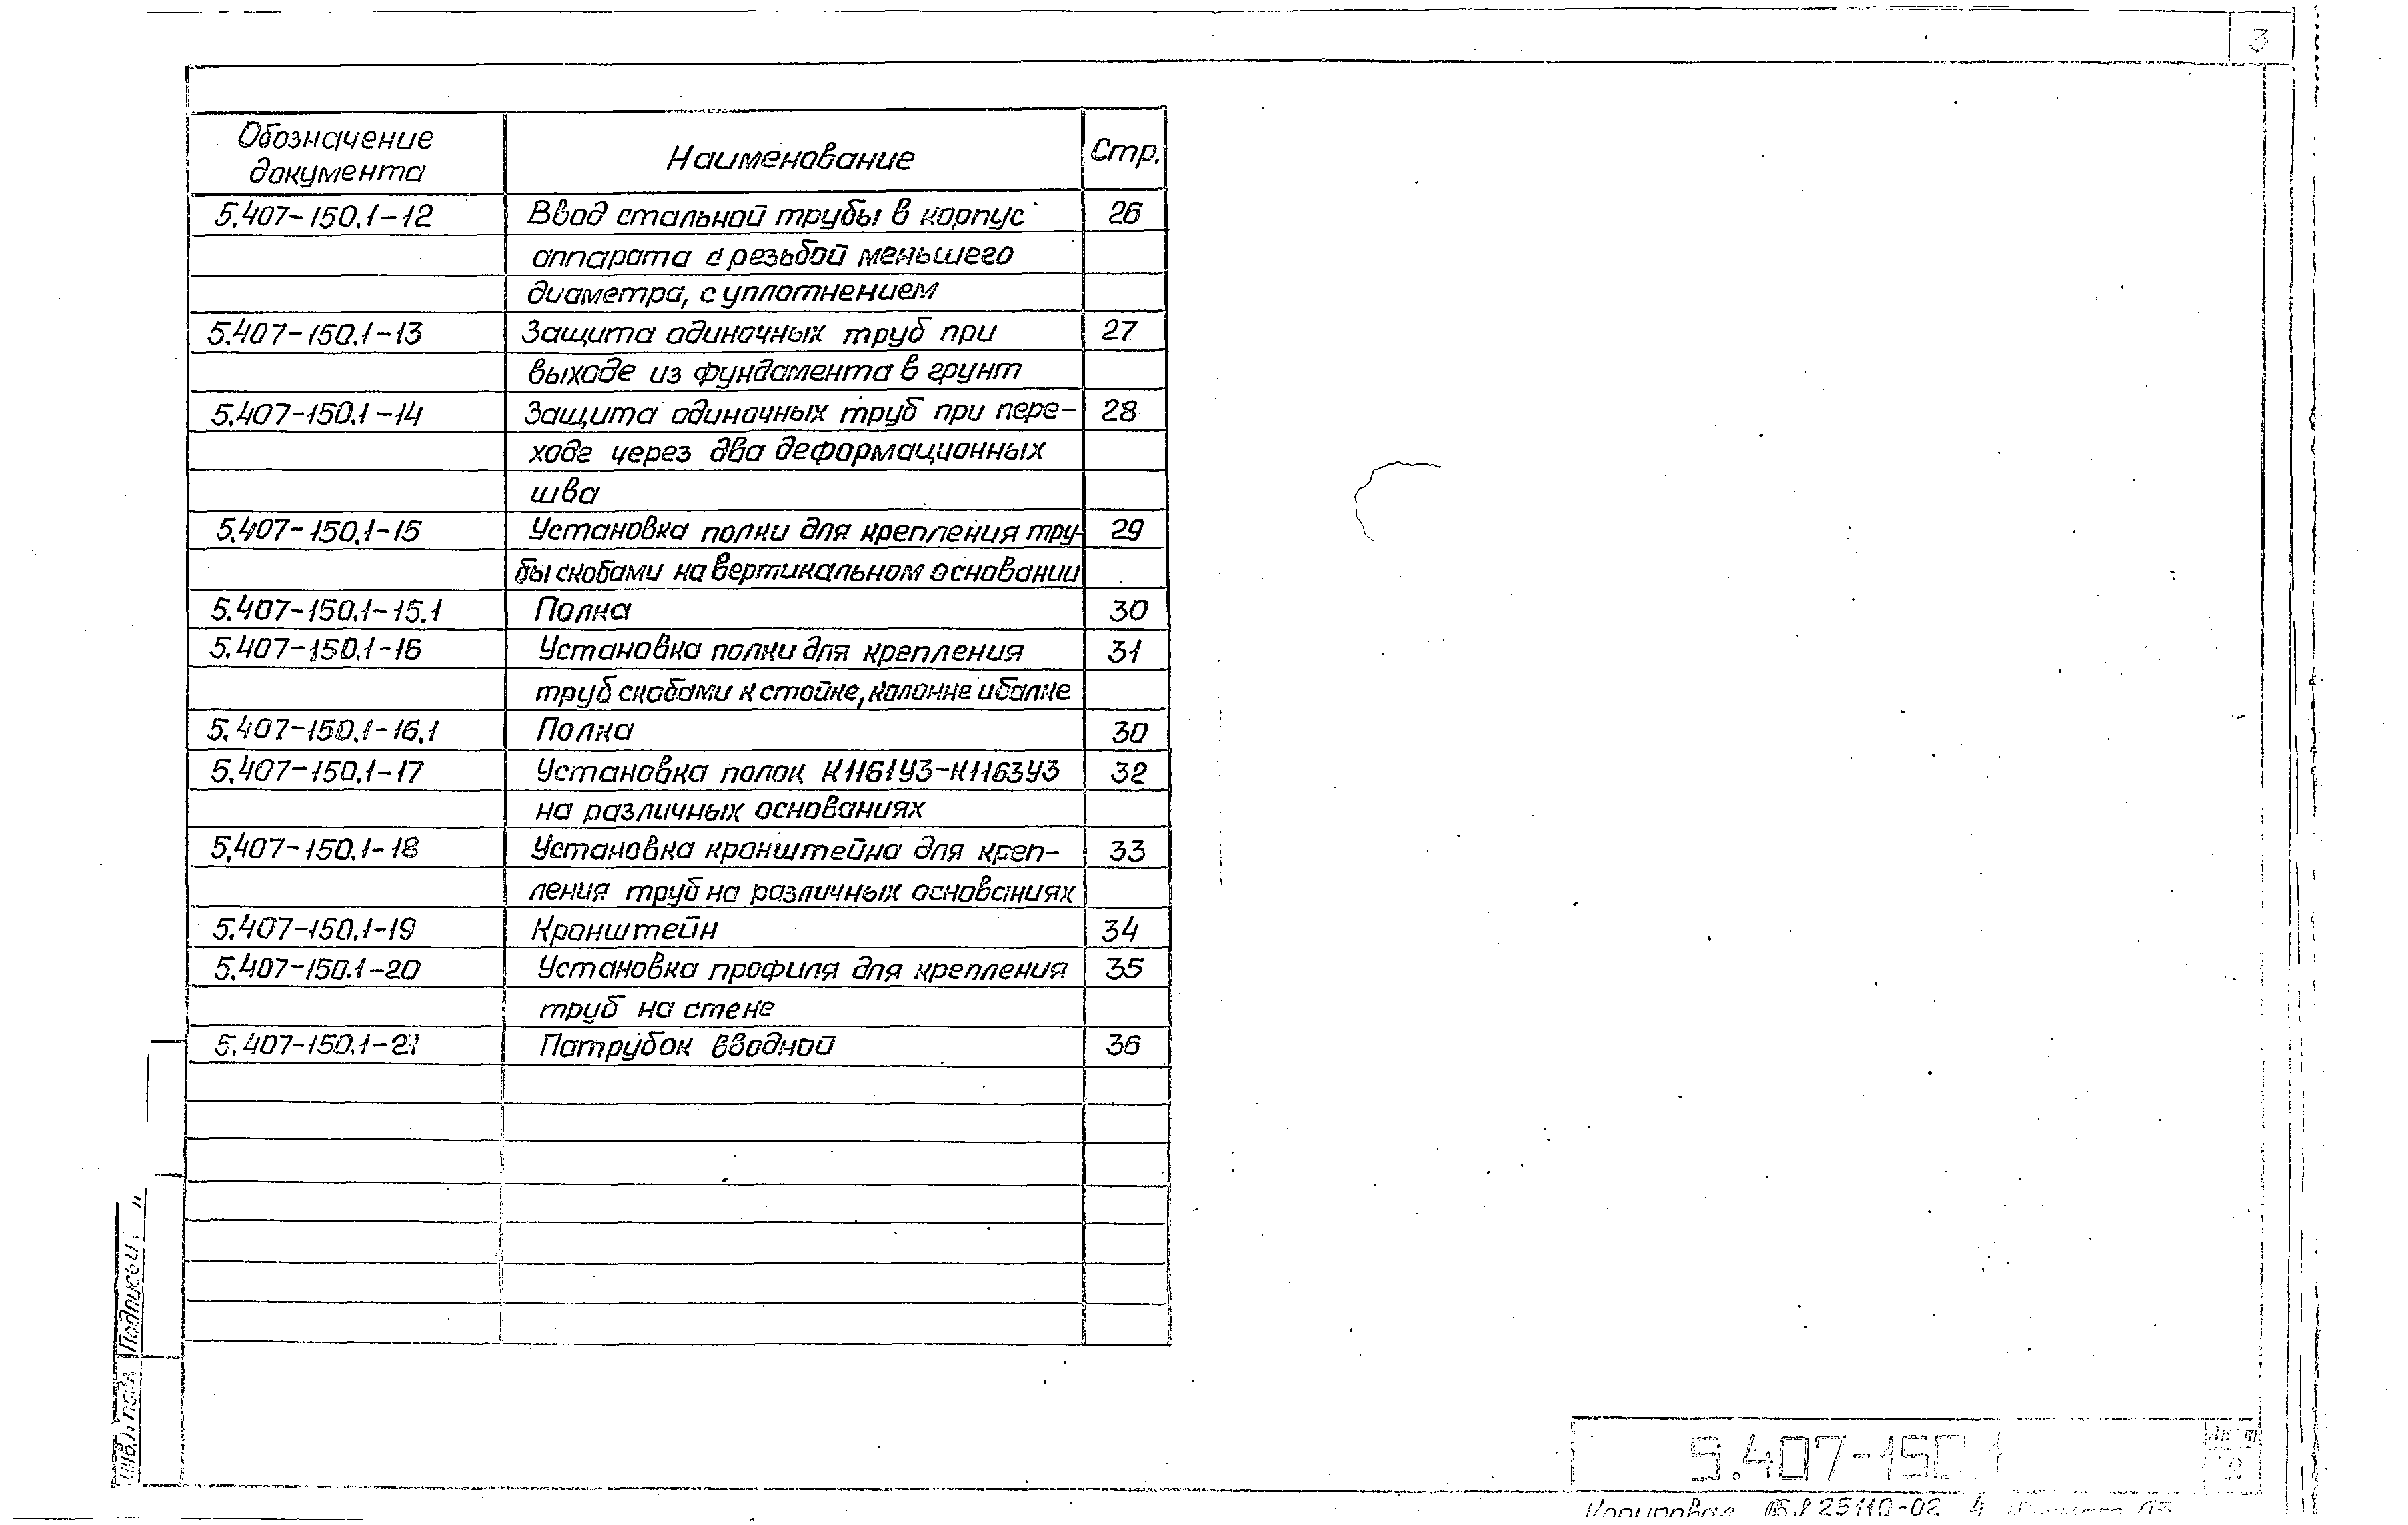 3
Обозначение документа
Наименование
Стр.
5.407-150.1-12 Ввод стальной трубы в корпус 26
аппарата с резьбой меньшего
диаметра, с уплотнением
5.407-150.1-13 Защита одиночных труб при 27
выходе из фундамента в грунт
5.407-150.1-14 Защита одиночных труб при пере- 28
ходе через два деформационных
шва
5.407-150.1-15 Установка полки для крепления тру- 29
бы скобами на вертикальном основании
5.407-150.1-15.1 Полка 30
5.407-150.1-16 Установка полки для крепления 31
труб скобами к стойке, колонне и балке
5.407-150.1-16.1 Полка 30
5.407-150.1-17 Установка полок К1161У3-К1163У3 32
на различных основаниях
5.407-150.1-18 Установка кронштейна для креп- 33
ления труб на различных основаниях
5.407-150.1-19 Кронштейн 34
5.407-150.1-20 Установка профиля для крепления 35
труб на стене
5.407-150.1-21 Патрубок вводной 36
Инв. № подл. Подпись и
5.407-150.1
Лист
2
Копировал 25110-02 4